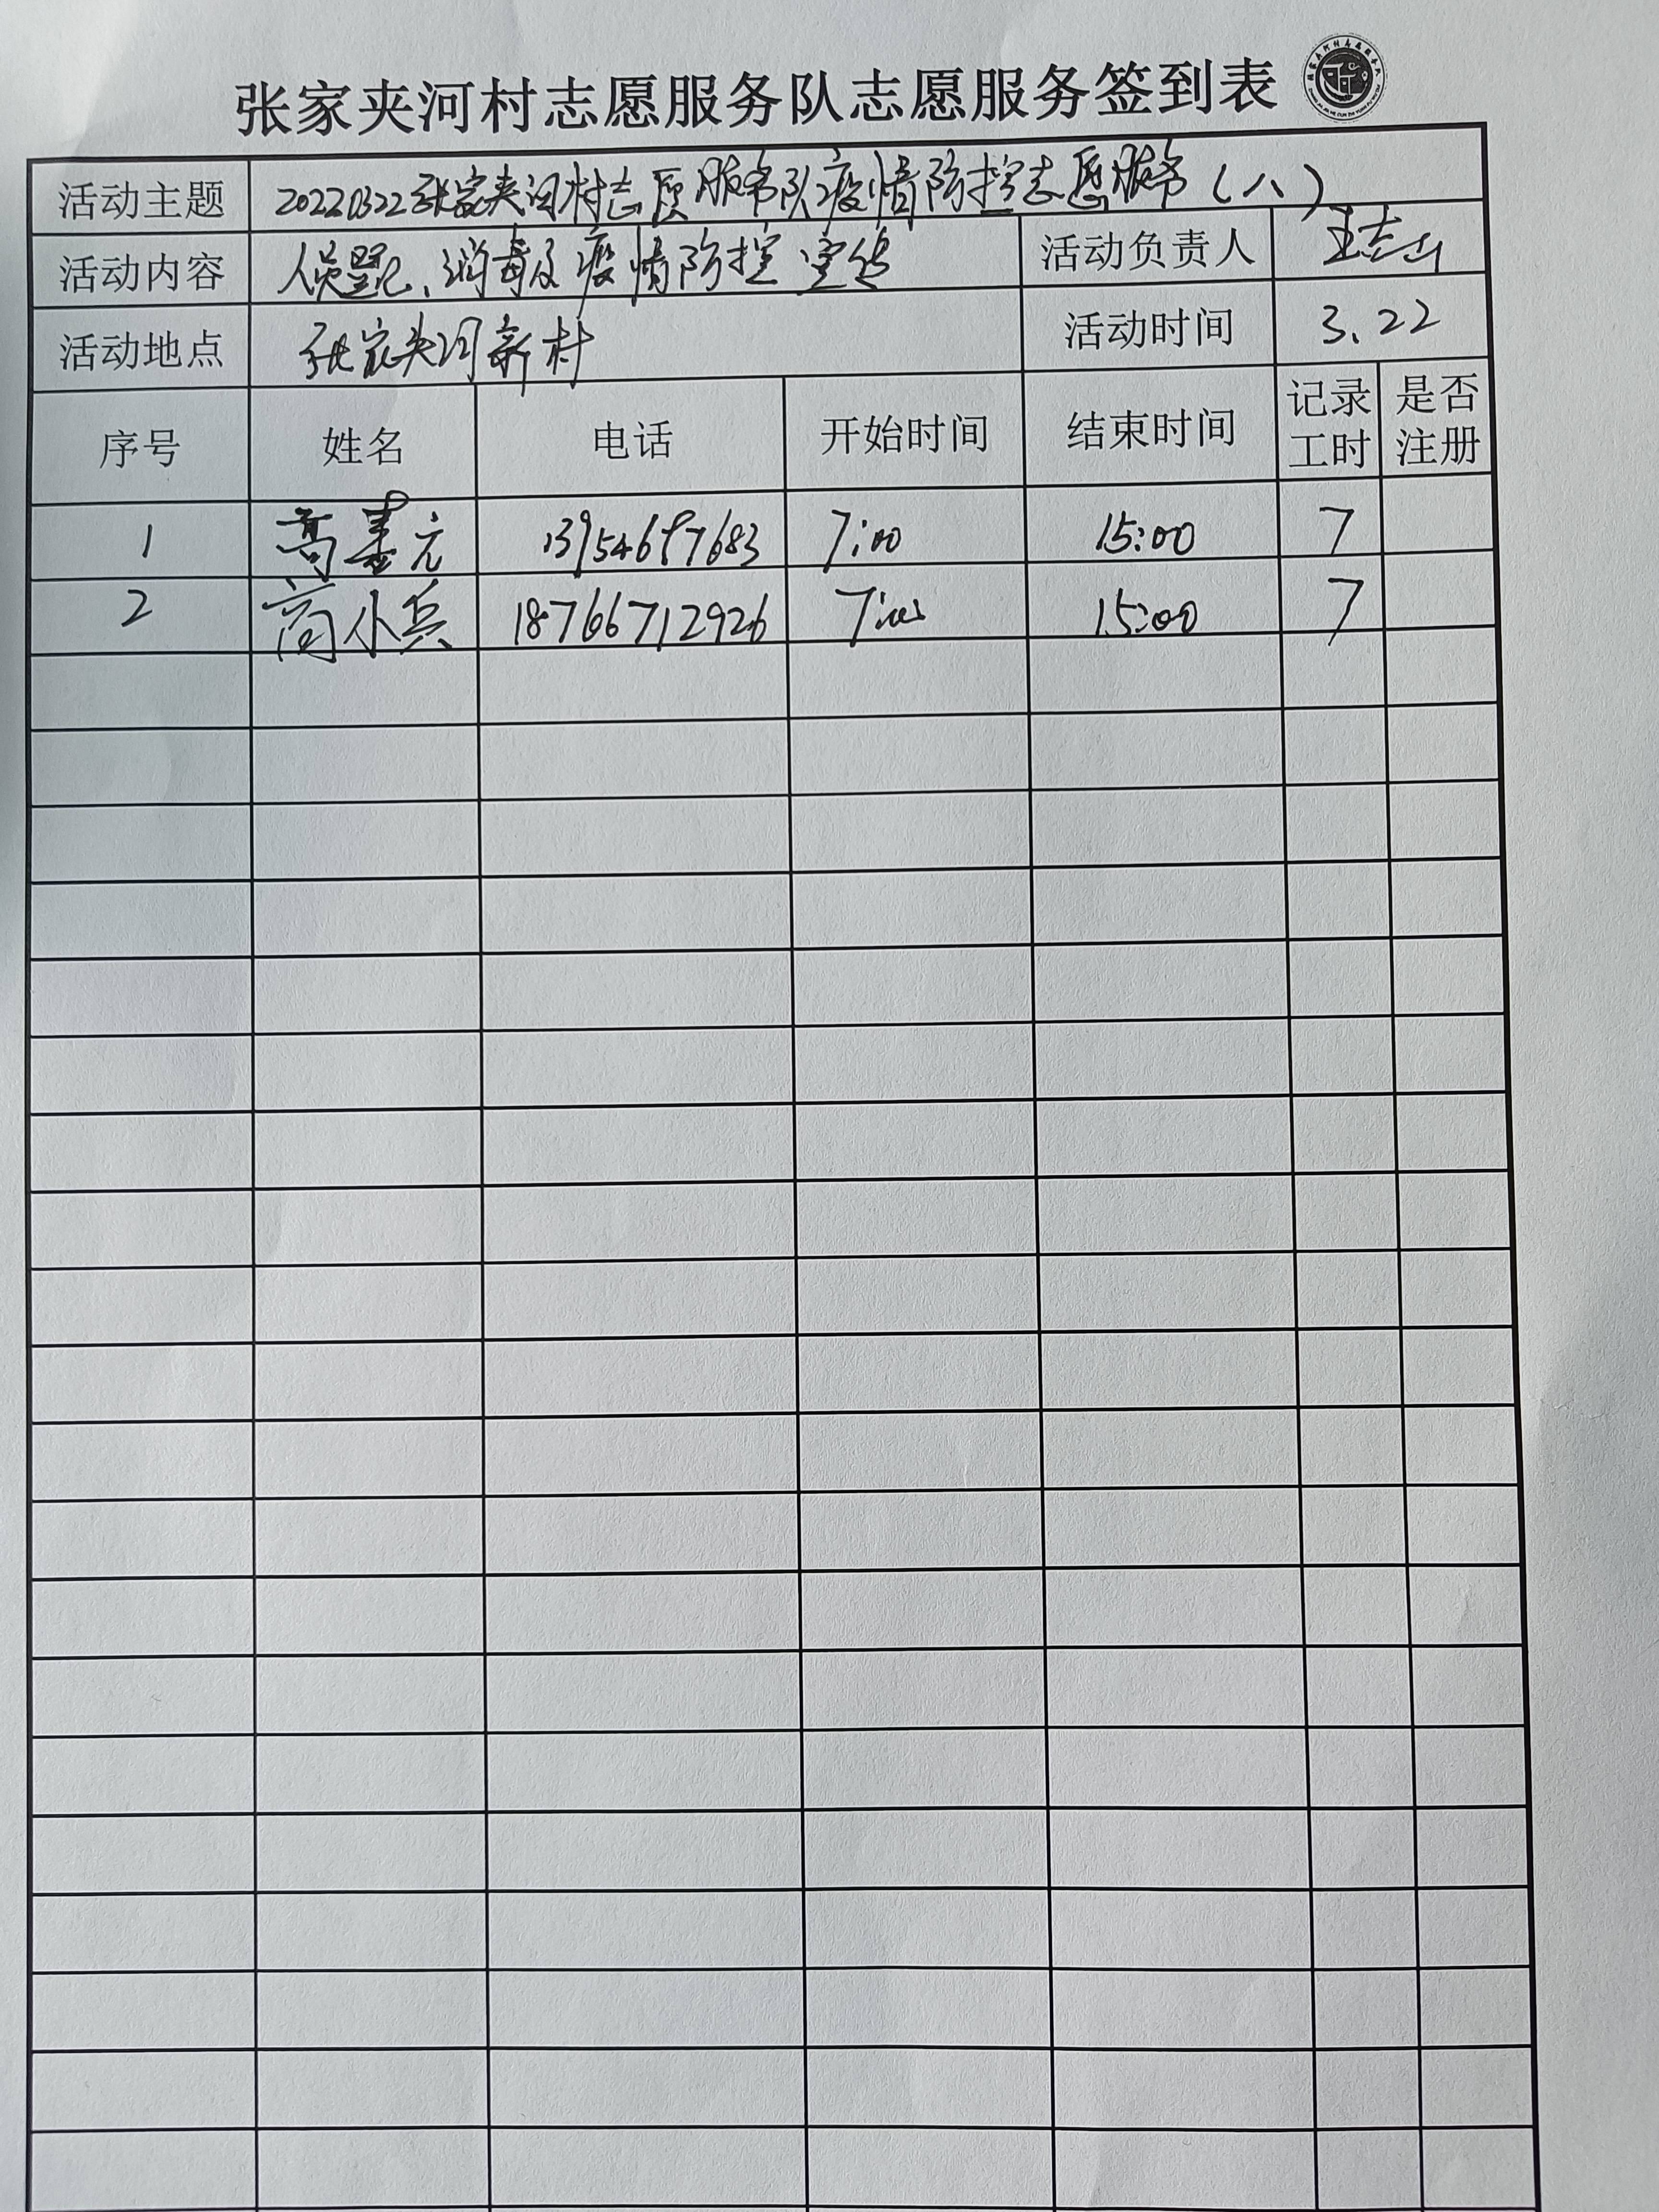 张家夹河村志愿服务队志愿服务签到表
活动主题 20220322张家夹河村志愿服务队疫情防控志愿服务(八)
活动内容 人员登记、消毒及疫情防控宣传 活动负责人 王志山
活动地点 张家夹河新村 活动时间 3.22
序号 姓名 电话 开始时间 结束时间 记录工时 是否注册
1 高 元 7:00 15:00 7
2 商小兵 18766712926 7:00 15:00 7